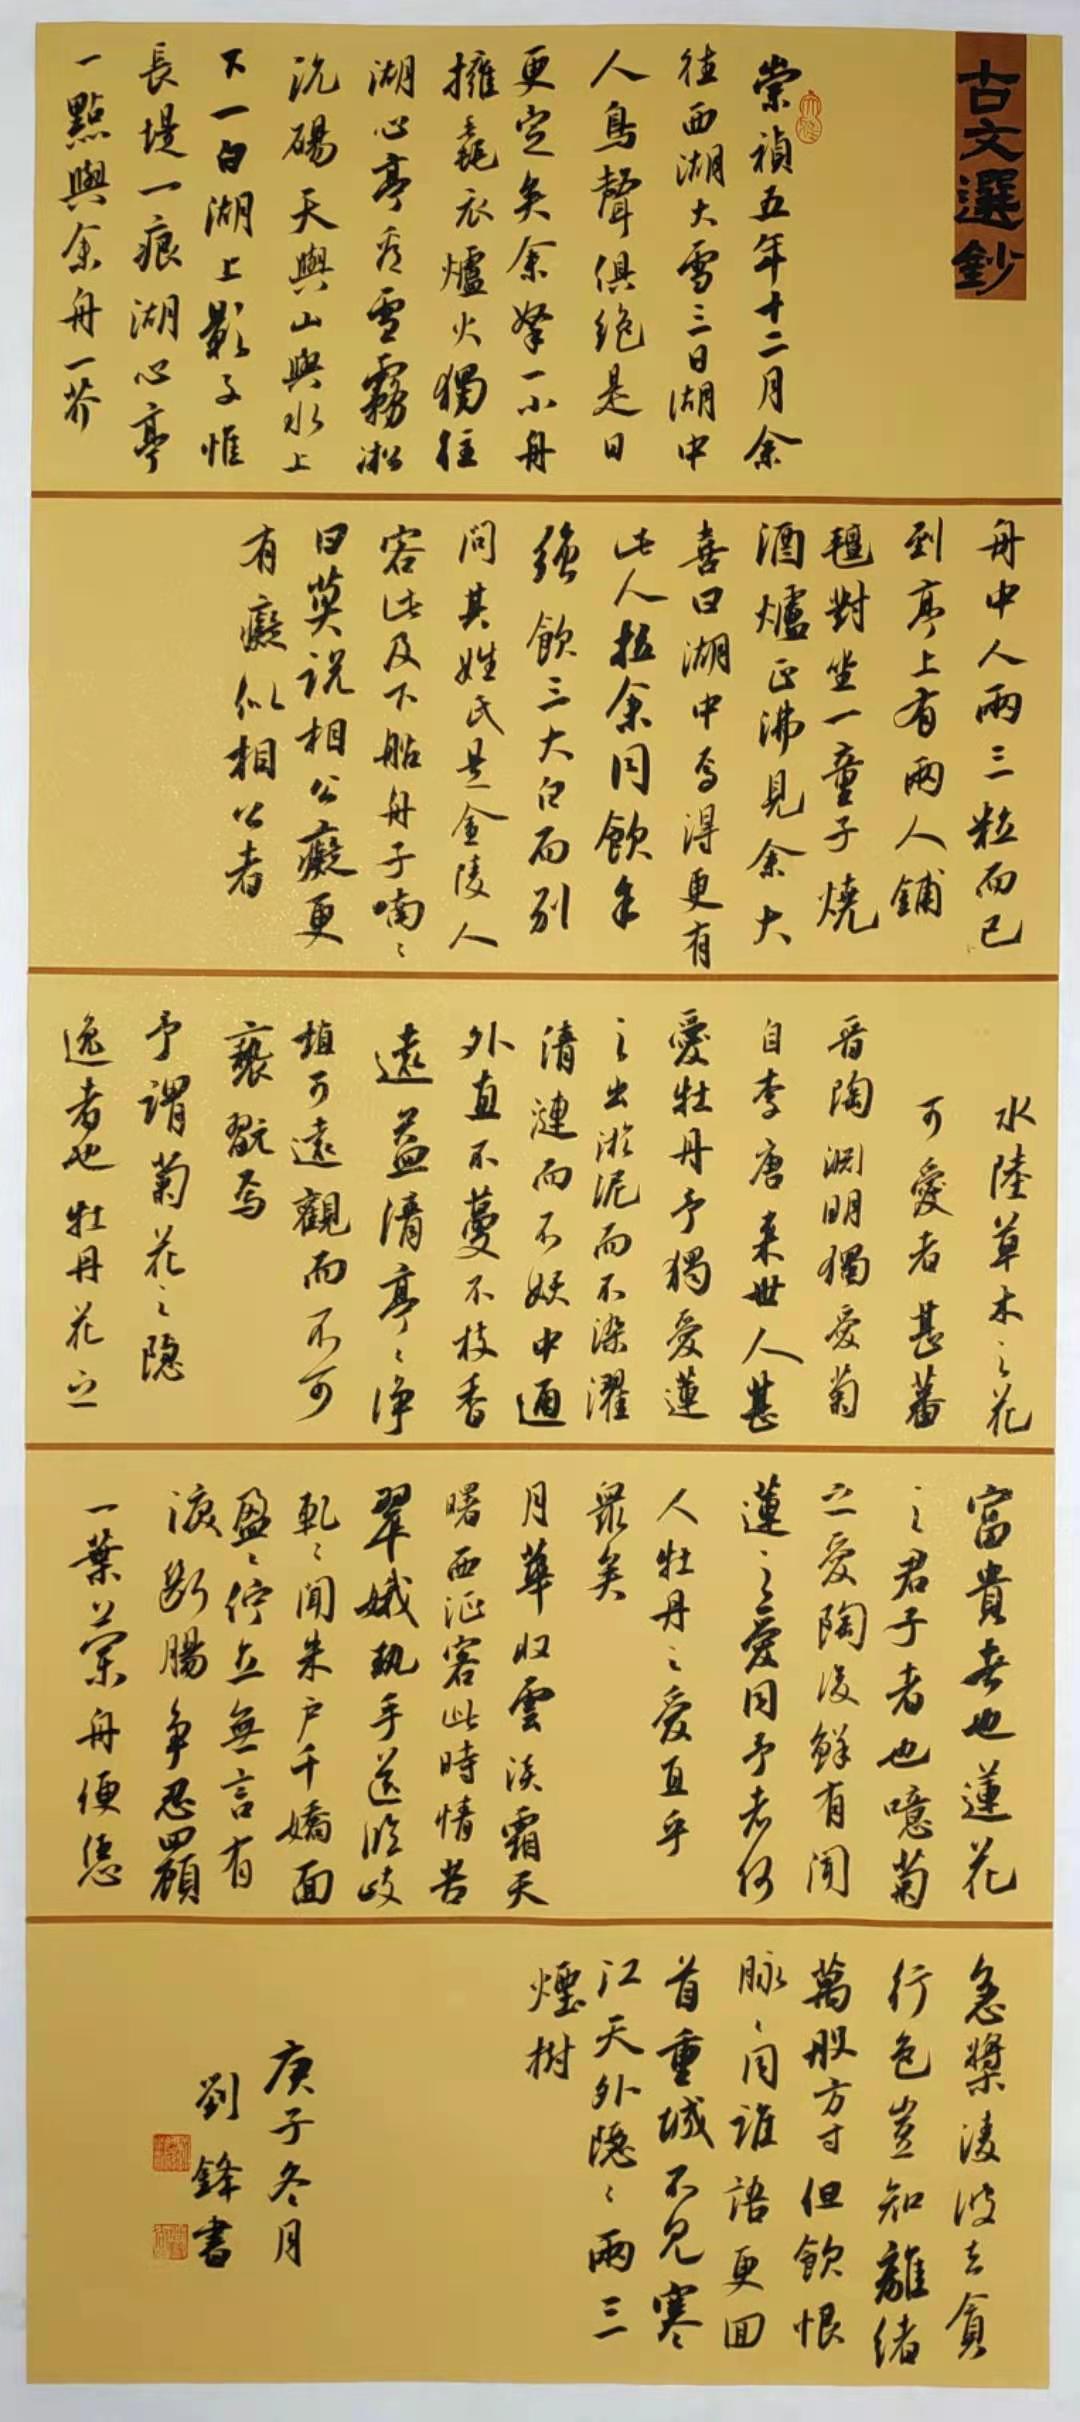 古文選鈔
崇禎五年十二月余
往西湖大雪三日湖中
人鳥聲俱絕是日
更定矣余拏一小舟
擁毳衣爐火獨往
湖心亭看雪霧凇
沆碭天與山與水上
下一白湖上影子惟
長堤一痕湖心亭
一點與余舟一芥
舟中人兩三粒而已
到亭上有兩人鋪
氈對坐一童子燒
酒爐正沸見余大
喜曰湖中焉得更有
此人拉余同飲余
強飲三大白而別
問其姓氏是金陵人
客此及下船舟子喃〻
曰莫說相公癡更
有癡似相公者
水陸草木之花
可愛者甚蕃
晉陶淵明獨愛菊
自李唐來世人甚
愛牡丹予獨愛蓮
之出淤泥而不染濯
清漣而不妖中通
外直不蔓不枝香
遠益清亭〻淨
植可遠觀而不可
褻翫焉
予謂菊花之隱
逸者也牡丹花之
富貴者也蓮花
之君子者也噫菊
之愛陶後鮮有聞
蓮之愛同予者何
人牡丹之愛宜乎
眾矣
月華收雲淡霜天
曙西征客此時情苦
翠娥執手送臨歧
軋〻開朱戶千嬌面
盈〻佇立無言有
淚斷腸爭忍回顧
一葉蘭舟便恁
急槳淩波去貪
行色豈知離緒
萬般方寸但飲恨
脉〻同誰語更回
首重城不見寒
江天外隱〻兩三
煙樹
庚子冬月
劉鋒書